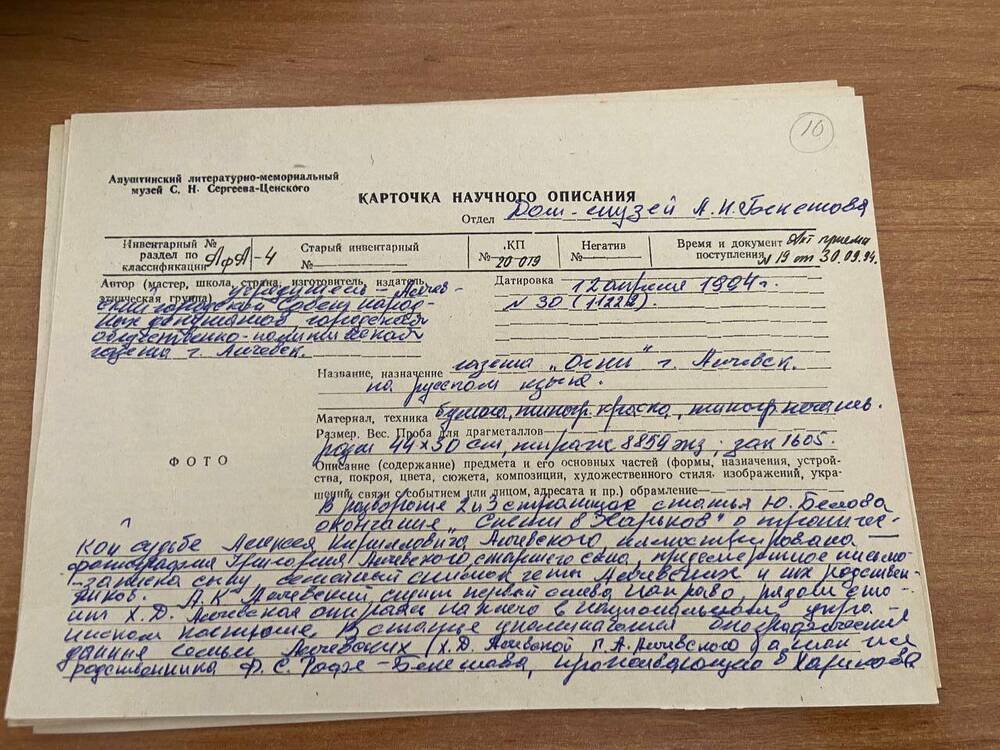 16
Алуштинский литературно-мемориальный
музей С. Н. Сергеева-Ценского
КАРТОЧКА НАУЧНОГО ОПИСАНИЯ
Отдел Дом-музей А.Н. Бекетова
Инвентарный №
раздел по
классификации АфА-4
Старый инвентарный
№
КП
№ 20 019
Негатив
№
Время и документ Акт приема
поступления № 19 от 30.09.94.
Автор (мастер, школа, страна, изготовитель, издатель,
этническая группа) учредитель - Алчев-
ский городской Совет народ-
ных депутатов, городская
общественно-политическая
газета г. Алчевск.
Датировка 12 апреля 1994 г.
№ 30 (11222).
Название, назначение газета „Огни" г. Алчевск.
на русском языке.
Материал, техника бумага, типогр. краска, типогр. печать.
Размер. Вес. Проба для драгметаллов
44×30 см, тираж 8859 экз; зак 1605.
ФОТО
Описание (содержание) предмета и его основных частей (формы, назначения, устрой-
ства, покроя, цвета, сюжета, композиции, художественного стиля, изображений, укра-
шений, связи с событием или лицом, адресата и пр.) обрамление
В развороте 2 и 3 страницах статья Ю. Белова
окончание „ в Харьков" о трагичес-
кой судьбе Алексея Кирилловича Алчевского, иллюстрирована
фотография Григория Алчевского, старшего сына, предсмертное письмо
-записка сыну, семейный снимок четы Алчевских и их родствен-
ников. А.К. Алчевский сидит первой слева направо, рядом сто-
ит Х.Д. Алчевская опираясь на него в национальном укра-
инском костюме. В статье упоминаются биографические
данные семьи Алчевских (Х.Д. Алчевской, Г.А. Алчевского) а
родственника Ф.С. Рофе-Бекетова, проживающего в Харькове